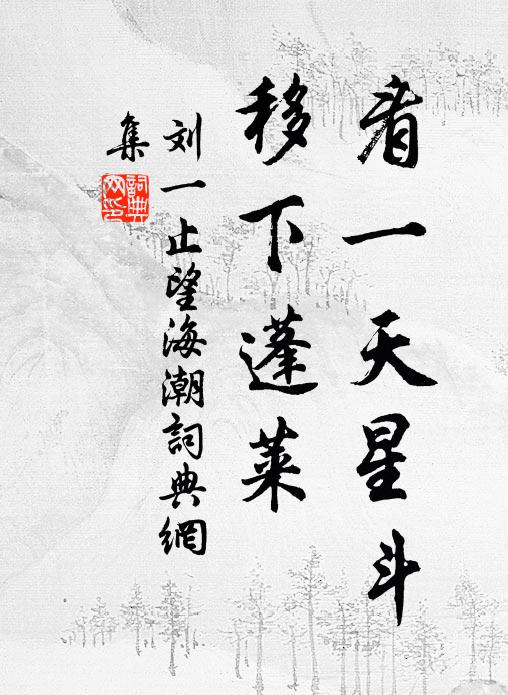 看一天星斗
移下蓬莱
刘一止望海潮詞典網
集
詞典網印